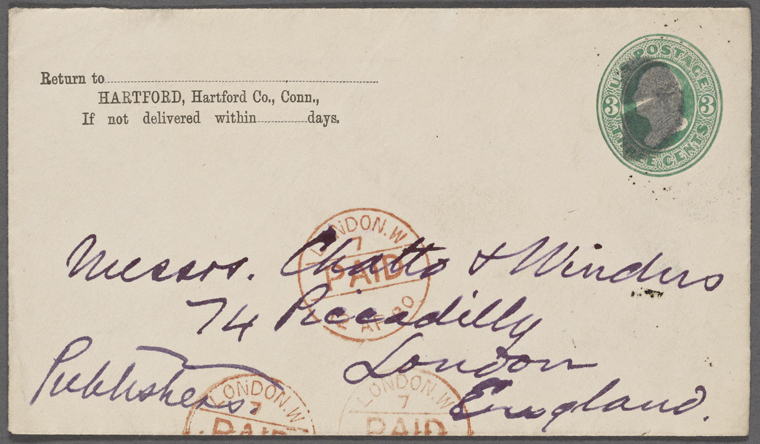 Return to
HARTFORD, Hartford Co., Conn.,
If not delivered within days.
U.S. POSTAGE
3 3
THREE CENTS
LONDON. W
7
PAID
AP 80
Messrs. Chatto & Windus
74 Piccadilly
London
England.
Publishers.
LONDON. W
7
PAID
LONDON. W
7
PAID